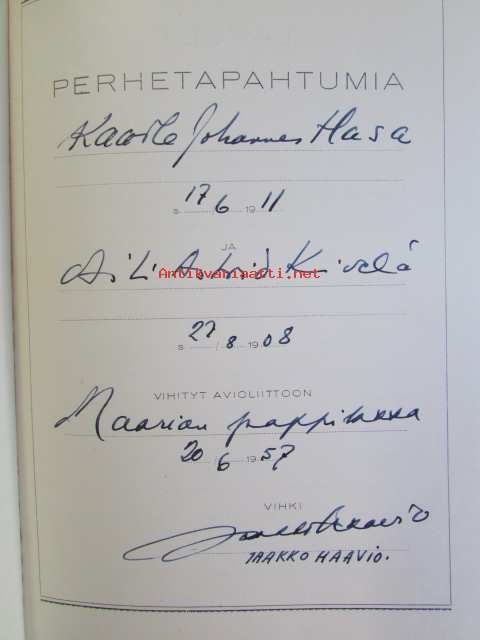 PERHETAPAHTUMIA
Kaarlo Johannes Hasa
s. 17/6 1911
JA
Aili Astrid Kivelä
Antikvariaatti.net
s. 27/8 1908
VIHITYT AVIOLIITTOON
Maarian pappilassa
20/6 1957
VIHKI
Jaakko Haavio
JAAKKO HAAVIO.